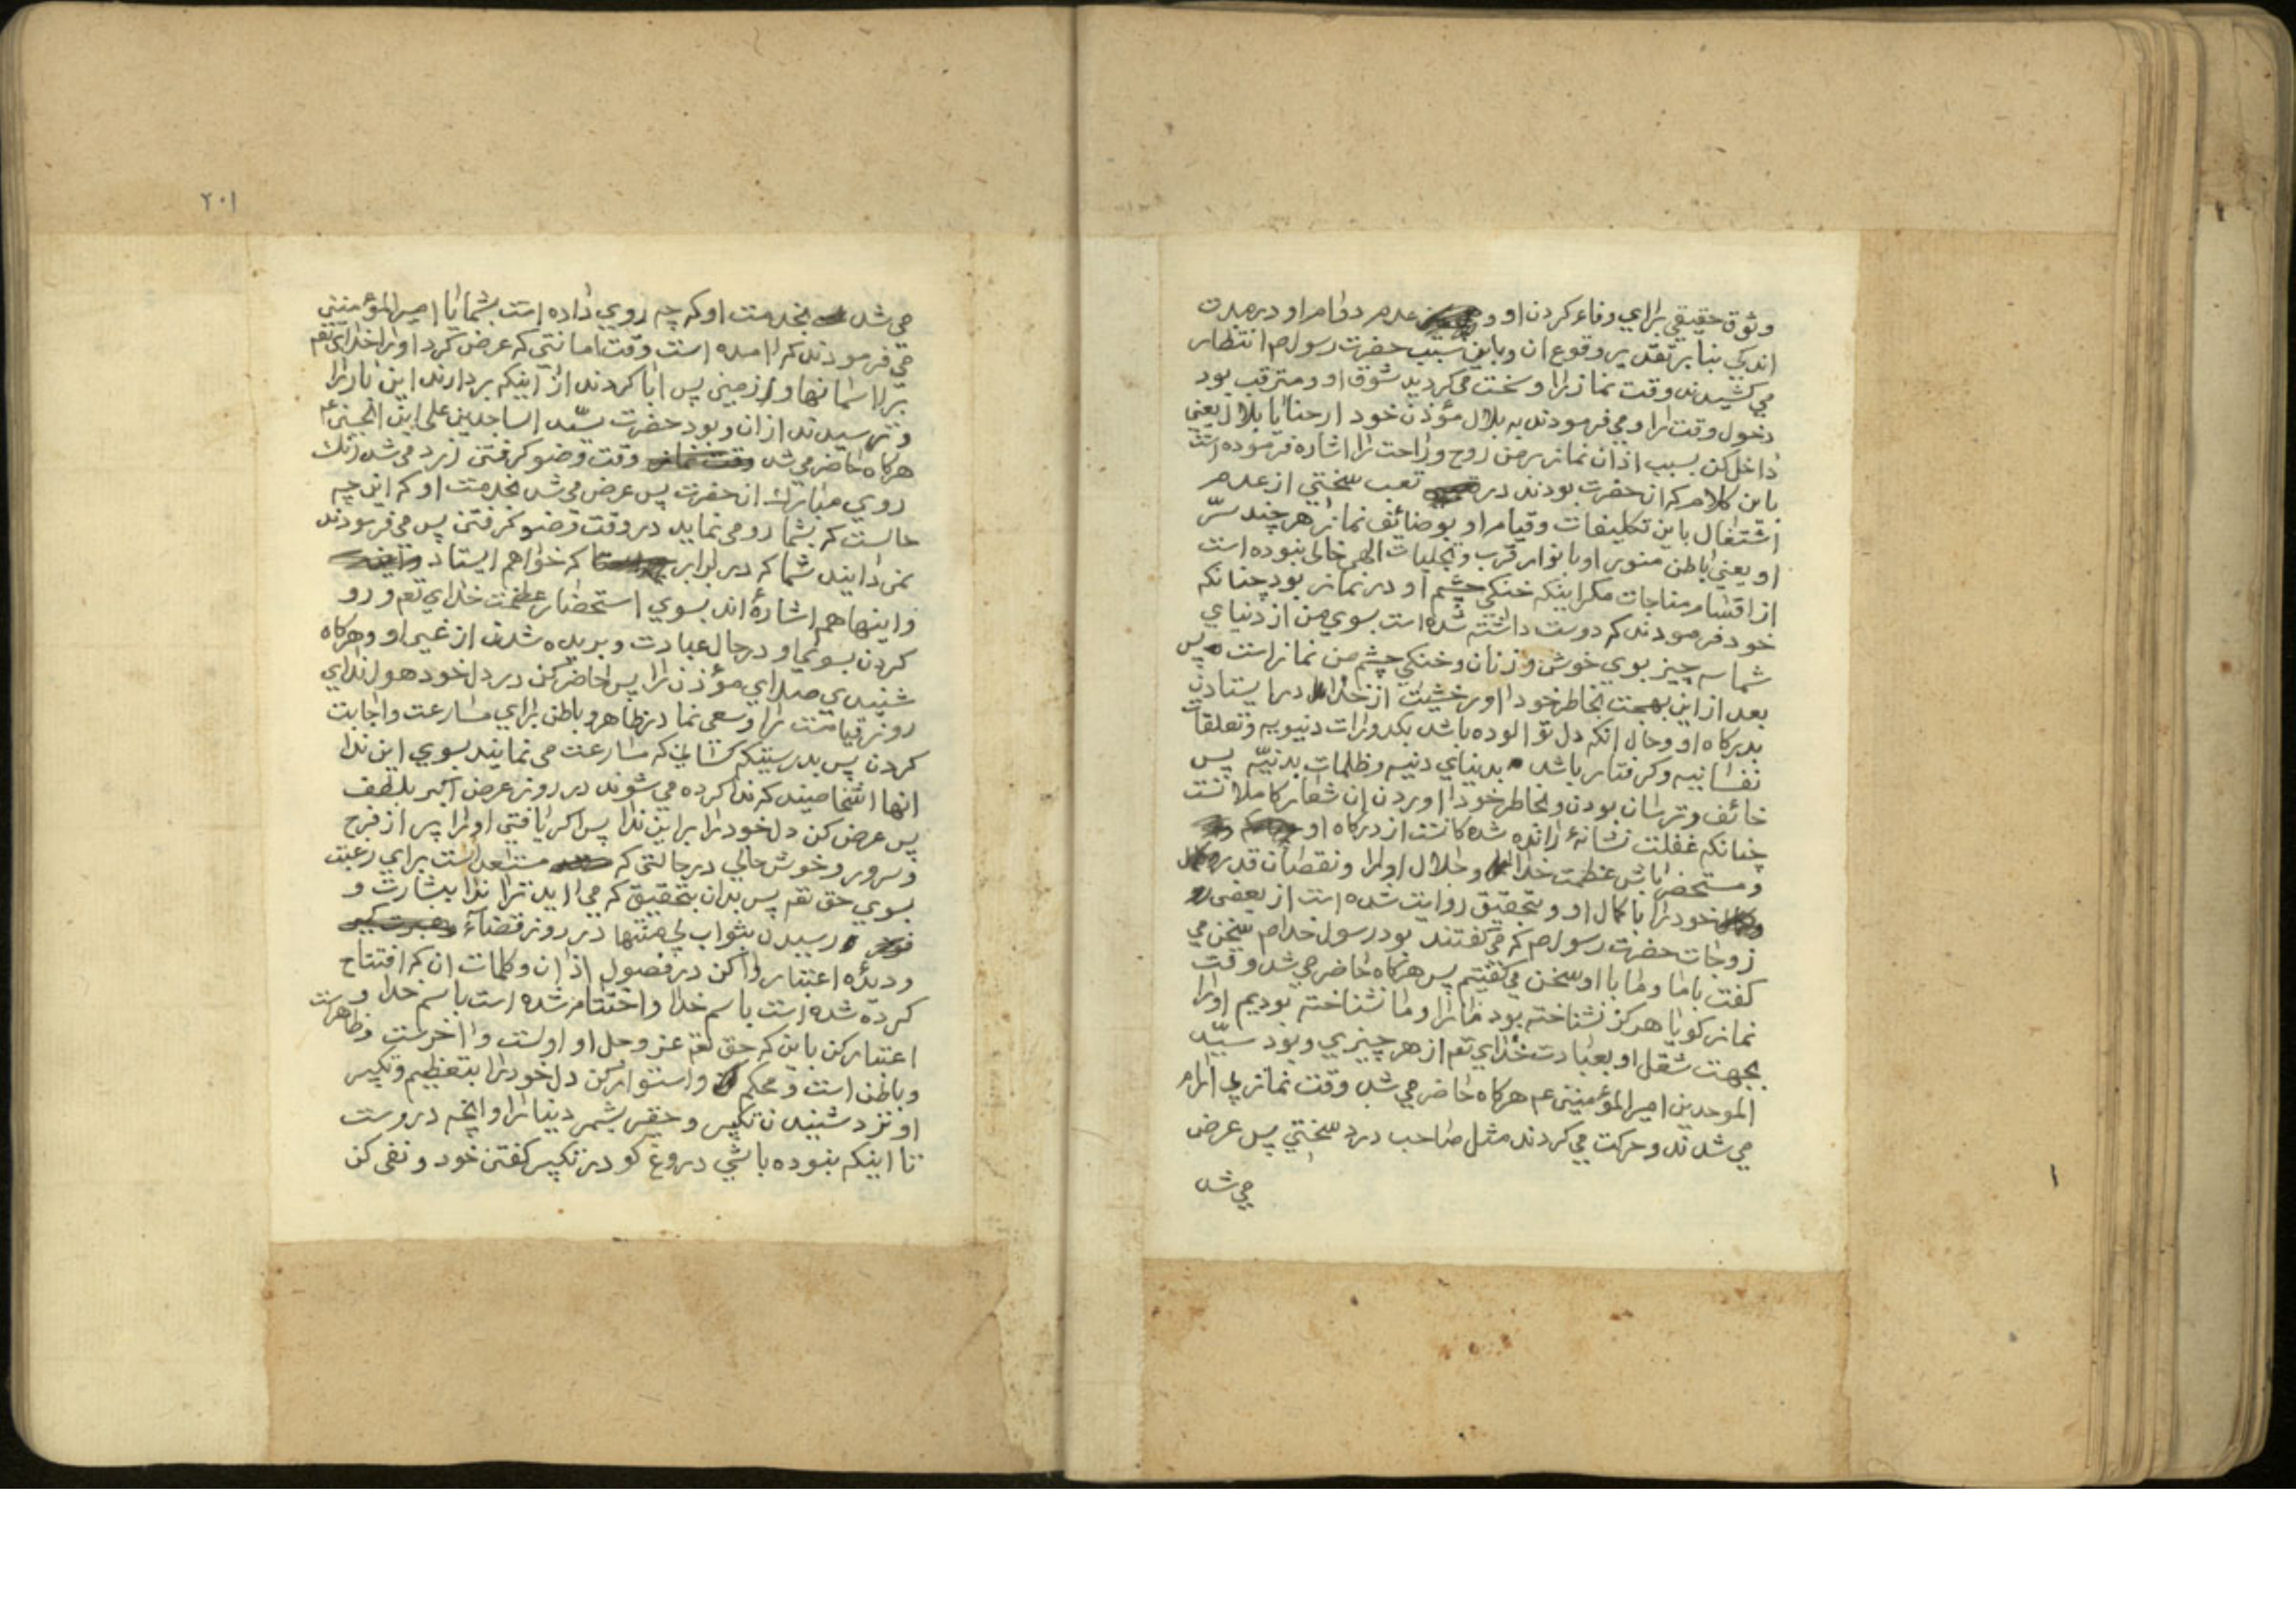 وثوق حقيقي براي وفاء كردن او و عدم دوام او در مدت
اندكي بنا بر تقدير وقوع ان وباين سبب حضرت رسول ص انتظار
مي كشيدند وقت نماز را وسخت مي كرديد شوق او ومترقب بود
دخول وقت را ومي فرمودند به بلال مؤذن خود ارحنا يا بلال يعني
داخل كن بسبب اذان نماز بر من روح وراحت را اشاره فرموده است
باين كلام كه ان حضرت بودند در تعب سختي از عدم
اشتغال باين تكليفات وقيام او بوضائف نماز هر چند سرّ
او يعني باطن منور او بانوار قرب وتجليات الهي خالي نبوده است
از اقسام مناجات مكر اينكه خنكي چشم او در نماز بود چنانكه
خود فرمودند كه دوست داشته شده است بسوي من از دنياي
شما سه چيز بوي خوش و زنان وخنكي چشم من نماز است پس
بعد از اين بهجت بخاطر خود اور خشيت از خدا در ايستادن
بدركاه او وحال انكه دل تو الوده باشد بكدورات دنيويه وتعلقات
نفسانيه وكرفتار باشد بدنياي دنيه وظلمات بدنيّه پس
خائف وترسان بودن وبخاطر خود اوردن ان شعار كاملانست
چنانكه غفلت نشانهٔ رانده شدكانست از دركاه او
ومستحضر باش عظمت خدا وجلال او را ونقصان قدر
خود را با كمال او وبتحقيق روايت شده است از بعضي
زوجات حضرت رسول ص كه مي كفتند بود رسول خدا ص سخن مي
كفت باما وما با او سخن مي كفتيم پس هركاه حاضر مي شد وقت
نماز كويا هركز نشناخته بود ما را وما نشناخته بوديم او را
بجهت شغل او بعبادت خداي تعم از هر چيزي وبود سيّد
الموحدين امير المؤمنين عم هركاه حاضر مي شد وقت نماز بي ارام
مي شدند وحركت مي كردند مثل صاحب درد سختي پس عرض
مي شد
٢٠١
مي شد بخدمت او كه چه روي داده است بشما يا امير المؤمنين
مي فرمودند كه امده است وقت امانتي كه عرض كرد او را خداي تعم
بر اسمانها و زمين پس ابا كردند از اينكه بردارند اين بار را
وترسيدند از ان وبود حضرت سيّد الساجدين علي ابن الحسين عم
هركاه حاضر مي شد وقت وضو كرفتن زرد مي شد رنك
روي مبارك ان حضرت پس عرض مي شد بخدمت او كه اين چه
حالست كه بشما رو مي نمايد در وقت وضو كرفتن پس مي فرمودند
نمي دانيد شما كه در برابر كه خواهم ايستاد
واينها هم اشارهٔ اند بسوي استحضار عظمت خداي تعم و رو
كردن بسوي او در حال عبادت وبريده شدن از غير او وهركاه
شنيدي صداي مؤذن را پس حاضر كن در دل خود هول نداي
روز قيامت را وسعي نما در ظاهر وباطن براي مسارعت واجابت
كردن پس بدرستيكه كساني كه مسارعت مي نمايند بسوي اين ندا
انها اشخاصيند كه ندا كرده مي شوند در روز عرض اكبر بلطف
پس عرض كن دل خود را بر اين ندا پس اكر يافتي او را پر از فرح
وسرور وخوش حالي در حالتي كه مستعد است براي رغبت
بسوي حق تعم پس بدان بتحقيق كه مي ايد ترا ندا ببشارت و
رسيدن بثواب بي منتها در روز قضاء
وديكره اعتبار كن در فصول اذان وكلمات ان كه افتتاح
كرده شده است باسم خدا واختتام شده است باسم خدا و
اعتبار كن باين كه حق تعم عز وجل او اولست و اخرست وظاهرست
وباطن است ومحكم واستوار كن دل خود را بتعظيم وتكبير
او نزد شنيدن تكبير وحقير بشمر دنيا را وانچه دروست
تا اينكه نبوده باشي دروغ كو در تكبير كفتن خود ونفي كن